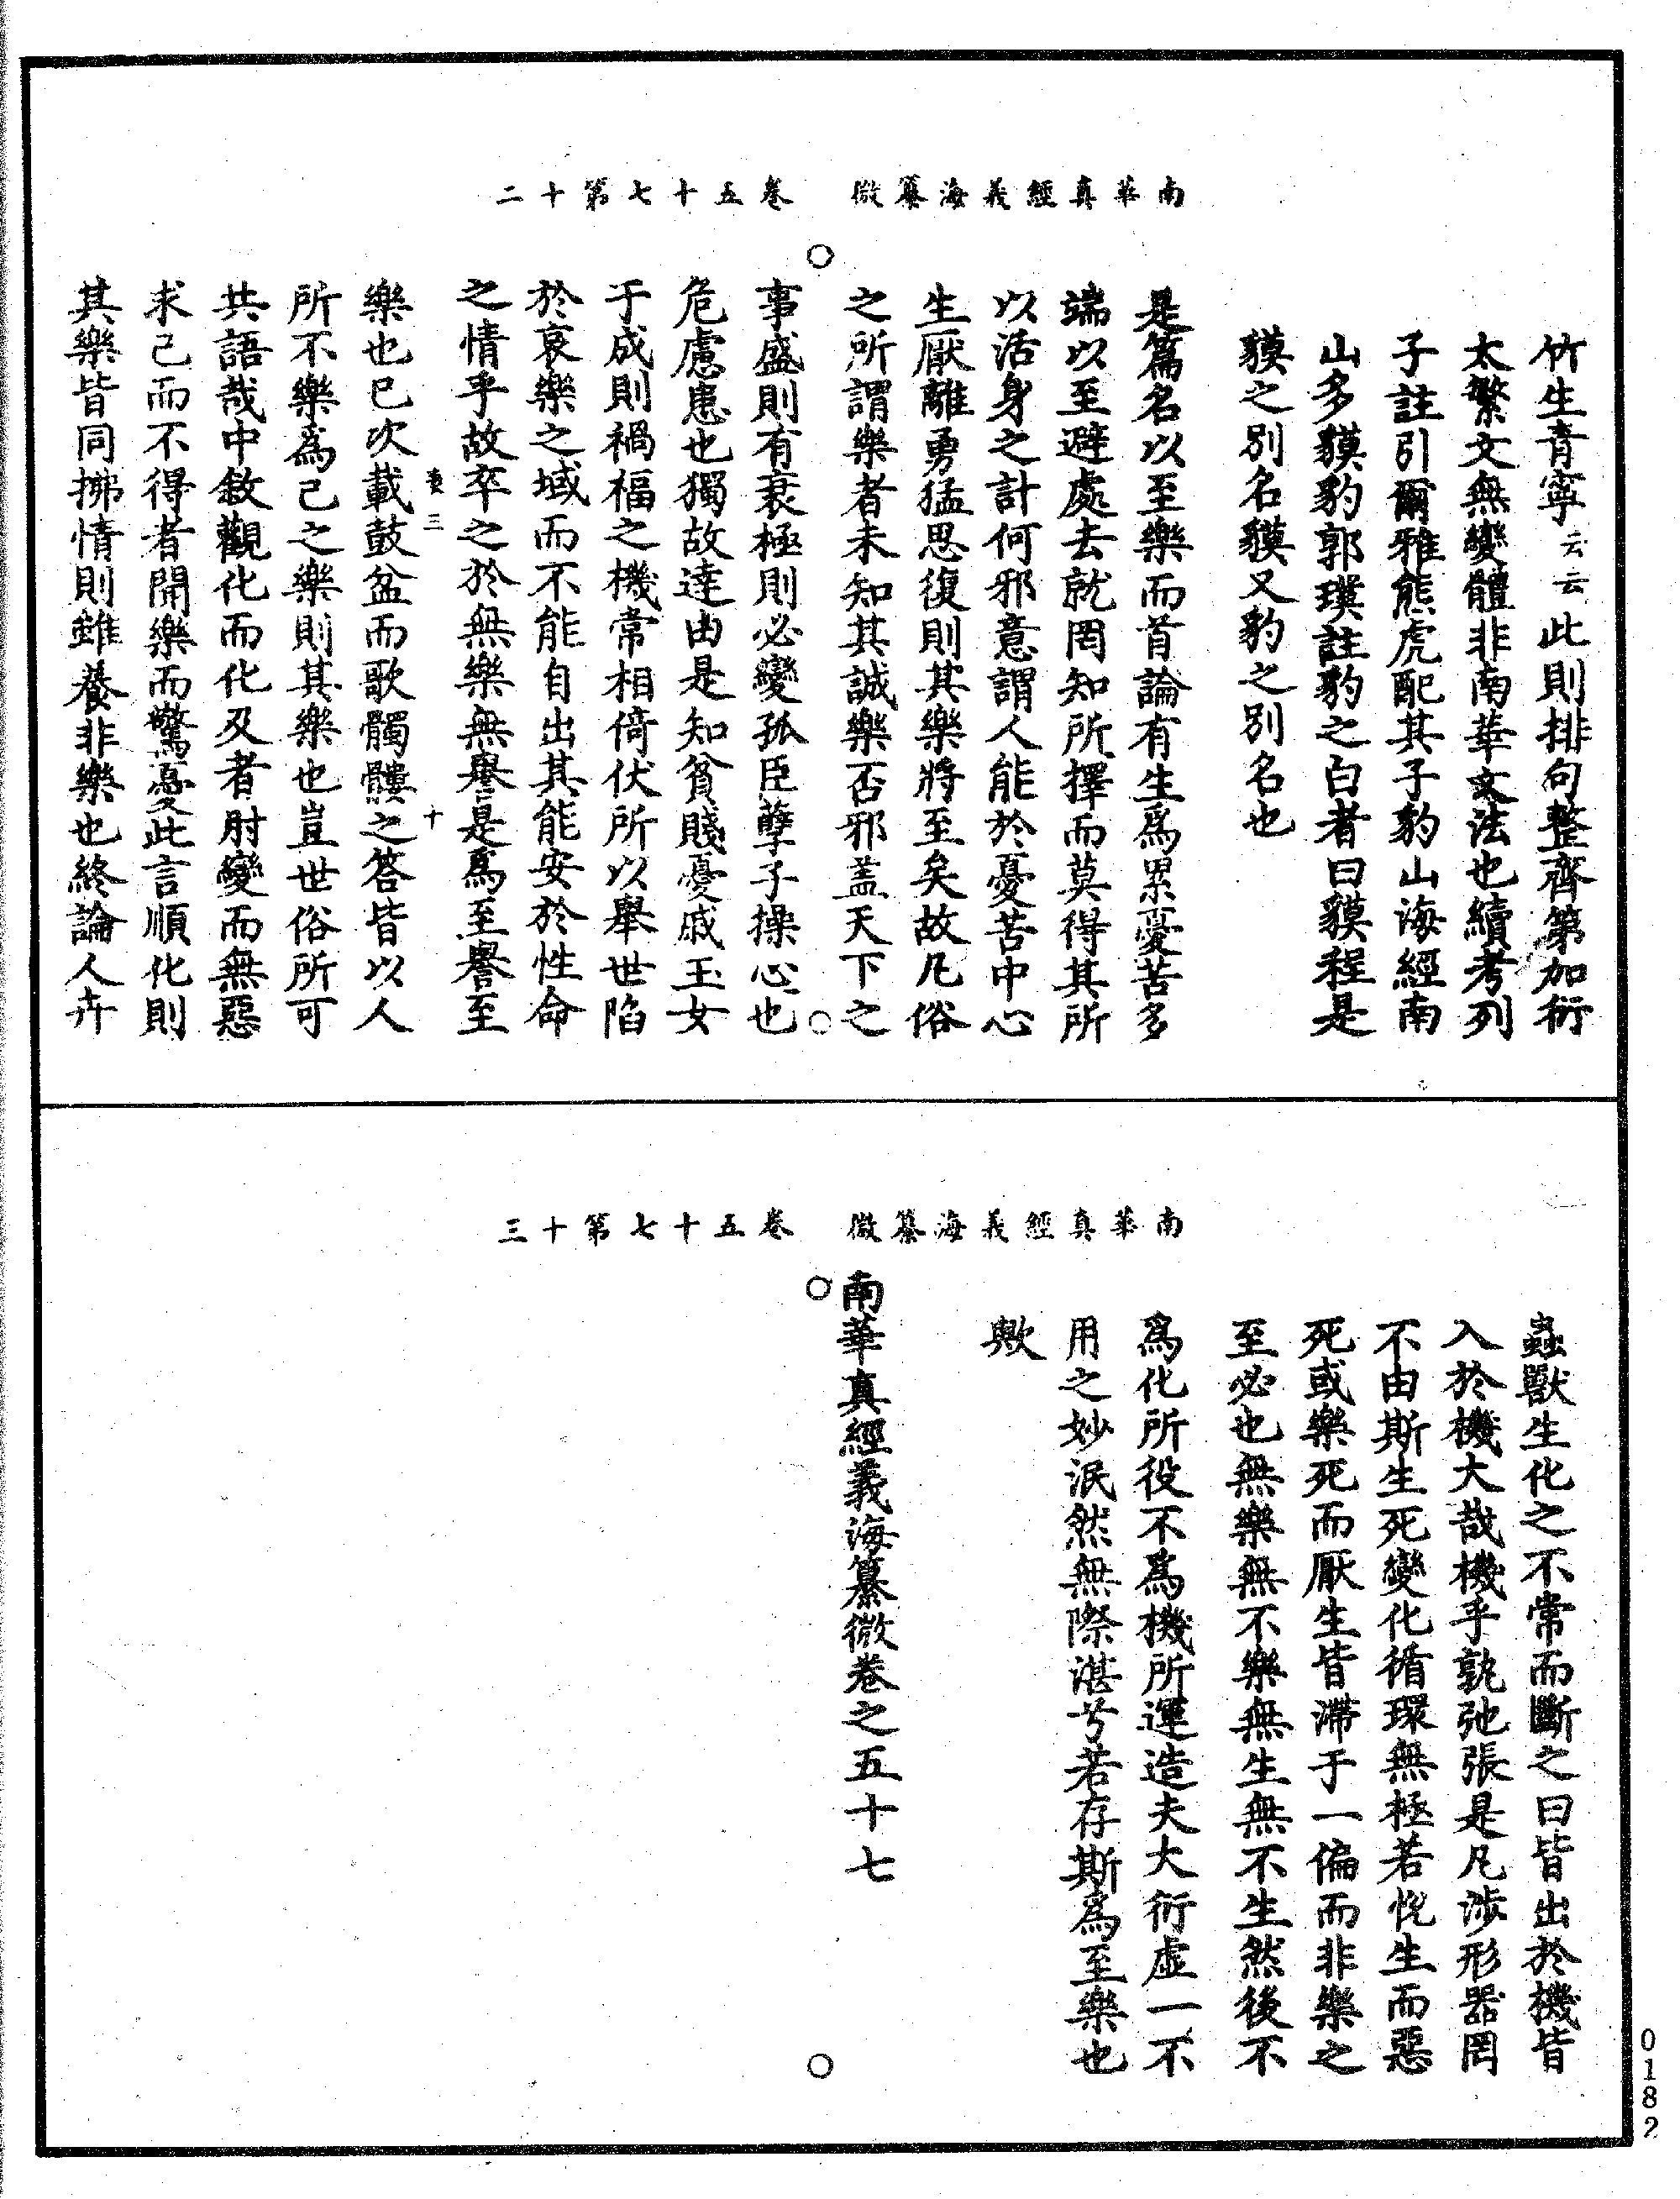 南華真經義海纂微　卷五十七第十二
竹生青寧云云此則排句整齊第加衍
太繁文無變體非南華文法也續考列
子註引爾雅熊虎配其子豹山海經南
山多貘豹郭璞註豹之白者曰貘程是
貘之別名貘又豹之別名也
是篇名以至樂而首論有生爲累憂苦多
端以至避處去就罔知所擇而莫得其所
以活身之計何邪意謂人能於憂苦中心
生厭離勇猛思復則其樂將至矣故凡俗
之所謂樂者未知其誠樂否邪盖天下之
事盛則有衰極則必變孤臣孽子操心也
危慮患也獨故達由是知貧賤憂戚玉女
于成則禍福之機常相倚伏所以舉世陷
於哀樂之域而不能自出其能安於性命
之情乎故卒之於無樂無譽是爲至譽至
三　十
樂也已次載鼓盆而歌髑髏之答皆以人
所不樂爲己之樂則其樂也豈世俗所可
共語哉中敘觀化而化及者肘變而無惡
求己而不得者開樂而驚憂此言順化則
其樂皆同拂情則雖養非樂也終論人卉
南華真經義海纂微　卷五十七第十三
蟲獸生化之不常而斷之曰皆出於機皆
入於機大哉機乎孰弛張是凡涉形器罔
不由斯生死變化循環無極若恱生而惡
死或樂死而厭生皆滯于一偏而非樂之
至必也無樂無不樂無生無不生然後不
爲化所役不爲機所運造夫大衍虛一不
用之妙泯然無際湛兮若存斯爲至樂也
歟
南華真經義海纂微卷之五十七
0182